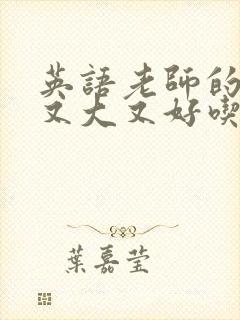 英語老師的
又大又好喫
葉嘉瑩